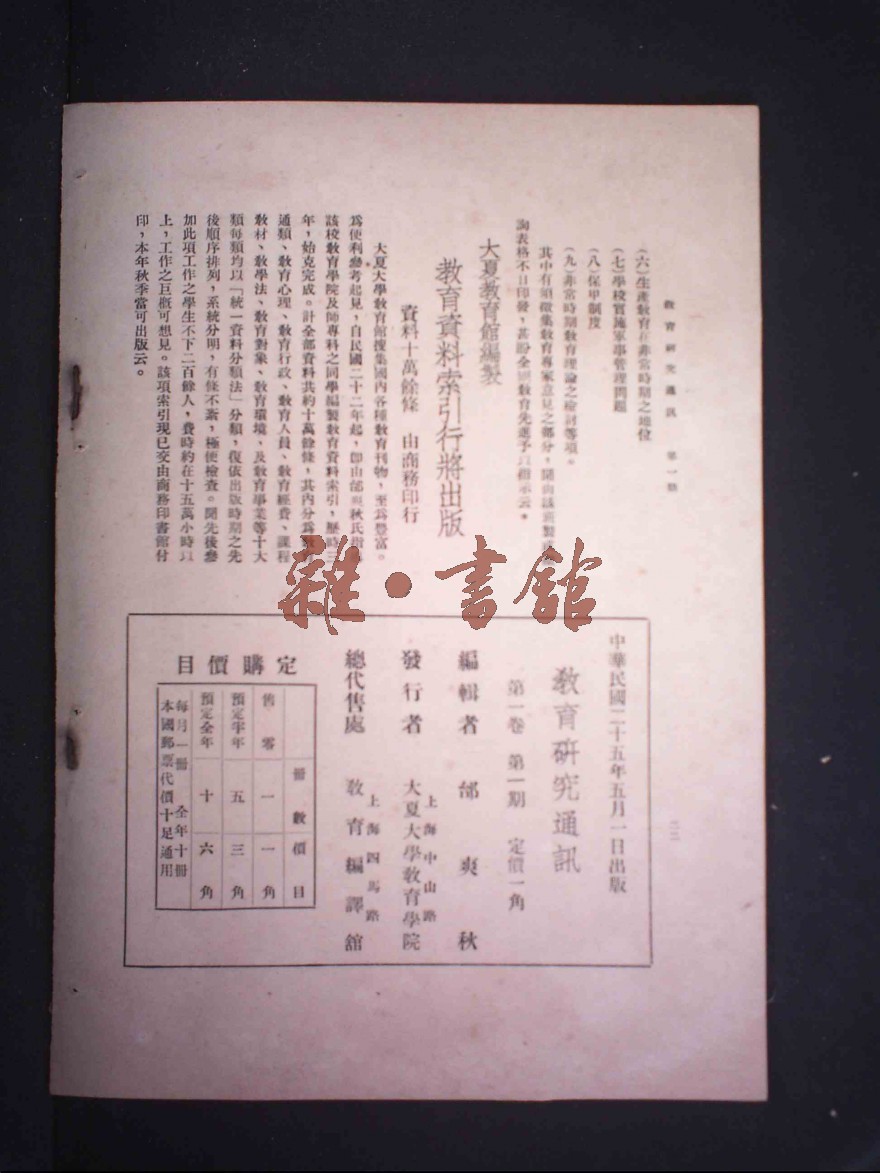 教育研究通訊 第一期
(六)生產教育在非常時期之地位
(七)學校實施軍事管理問題
(八)保甲制度
(九)非常時期教育理論之檢討等項。
其中有須徵集教育專家意見之部分,聞由該班製
詢表格不日印發,甚盼全國教育先進予以指示云。
大夏教育館編製
教育資料索引行將出版
資料十萬餘條 由商務印行
大夏大學教育館搜集國內各種教育刊物,至為豐富。
為便利參考起見,自民國二十二年起,即由邰爽秋氏指
該校教育學院及師專科之同學編製教育資料索引,歷時三
年,始克完成。計全部資料共約十萬餘條,其內分為教
通類、教育心理、教育行政、教育人員、教育經費、課程
教材、教學法、教育對象、教育環境、及教育事業等十大
類每類均以「統一資料分類法」分類,復依出版時期之先
後順序排列,系統分明,有條不紊,極便檢查。聞先後參
加此項工作之學生不下二百餘人,費時約在十五萬小時以
上,工作之巨概可想見。該項索引現已交由商務印書館付
印,本年秋季當可出版云。
雜·書館
二二
中華民國二十五年五月一日出版
教育研究通訊
第一卷 第一期 定價一角
編輯者 邰爽秋
上海中山路
發行者 大夏大學教育學院
上海四馬路
總代售處 教育編譯館
定購價目
冊數 價目
零售 一 一角
預定半年 五 三角
預定全年 十 六角
每月一冊 全年十冊
本國郵票代價十足通用